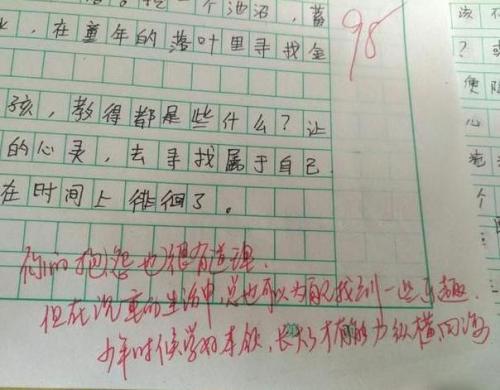 一个池沼，蓄
，在童年的落叶里寻找金
98
孩，教得都是些什么？让
的心灵，去寻找属于自己
在时间上徘徊了。
你的抱怨也很有道理.
但在沉重的生活中,总也可以为自己找到一些乐趣.
少年时候学好本领,长大了才有能力纵横四海
该
？
便
心